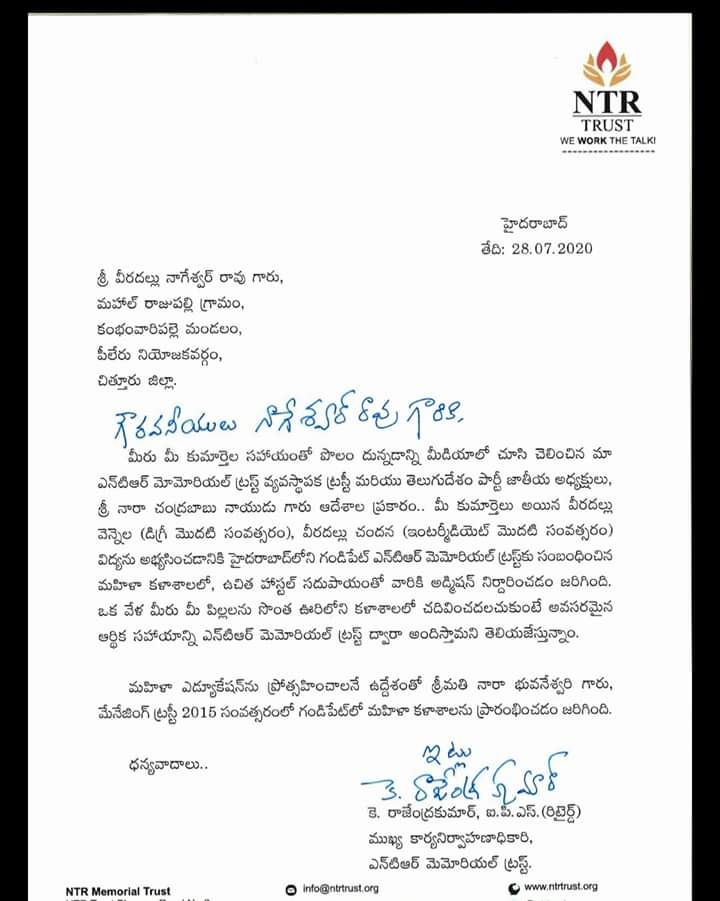 NTR
TRUST
WE WORK THE TALK!
హైదరాబాద్
తేది: 28.07.2020
శ్రీ వీరదల్లు నాగేశ్వర్ రావు గారు,
మహల్ రాజుపల్లి గ్రామం,
కంభంవారిపల్లె మండలం,
పీలేరు నియోజకవర్గం,
చిత్తూరు జిల్లా.
గౌరవనీయులు నాగేశ్వర్ రావు గారికి,
మీరు మీ కుమార్తెల సహాయంతో పొలం దున్నడాన్ని మీడియాలో చూసి చెలించిన మా
ఎన్‌టిఆర్ మోమోరియల్ ట్రస్ట్ వ్యవస్థాపక ట్రస్టీ మరియు తెలుగుదేశం పార్టీ జాతీయ అధ్యక్షులు,
శ్రీ నారా చంద్రబాబు నాయుడు గారు ఆదేశాల ప్రకారం.. మీ కుమార్తెలు అయిన వీరదల్లు
వెన్నెల (డిగ్రీ మొదటి సంవత్సరం), వీరదల్లు చందన (ఇంటర్మీడియెట్ మొదటి సంవత్సరం)
విద్యను అభ్యసించడానికి హైదరాబాద్‌లోని గండిపేట్ ఎన్‌టిఆర్ మెమోరియల్ ట్రస్ట్‌కు సంబంధించిన
మహిళా కళాశాలలో, ఉచిత హాస్టల్ సదుపాయంతో వారికి అడ్మిషన్ నిర్దారించడం జరిగింది.
ఒక వేళ మీరు మీ పిల్లలను సొంత ఊరిలోని కళాశాలలో చదివించదలచుకుంటే అవసరమైన
ఆర్థిక సహాయాన్ని ఎన్‌టిఆర్ మెమోరియల్ ట్రస్ట్ ద్వారా అందిస్తామని తెలియజేస్తున్నాం.
మహిళా ఎడ్యూకేషన్‌ను ప్రోత్సహించాలనే ఉద్దేశంతో శ్రీమతి నారా భువనేశ్వరి గారు,
మేనేజింగ్ ట్రస్టీ 2015 సంవత్సరంలో గండిపేట్‌లో మహిళా కళాశాలను ప్రారంభించడం జరిగింది.
ధన్యవాదాలు..
ఇట్లు
కె. రాజేంద్ర కుమార్
కె. రాజేంద్రకుమార్, ఐ.పి.ఎస్.(రిటైర్డ్)
ముఖ్య కార్యనిర్వాహణాధికారి,
ఎన్‌టిఆర్ మెమోరియల్ ట్రస్ట్.
NTR Memorial Trust
info@ntrtrust.org
www.ntrtrust.org